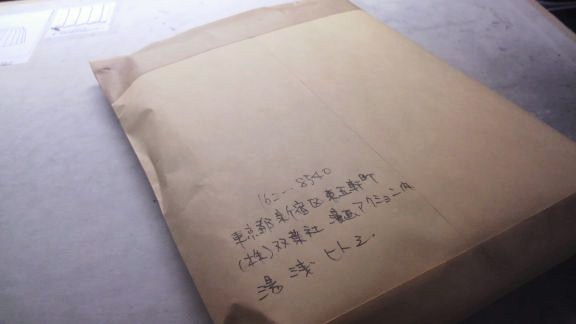 162-8540
東京都新宿区東五軒町
(株)双葉社 漫画アクション内
湯浅ヒトシ